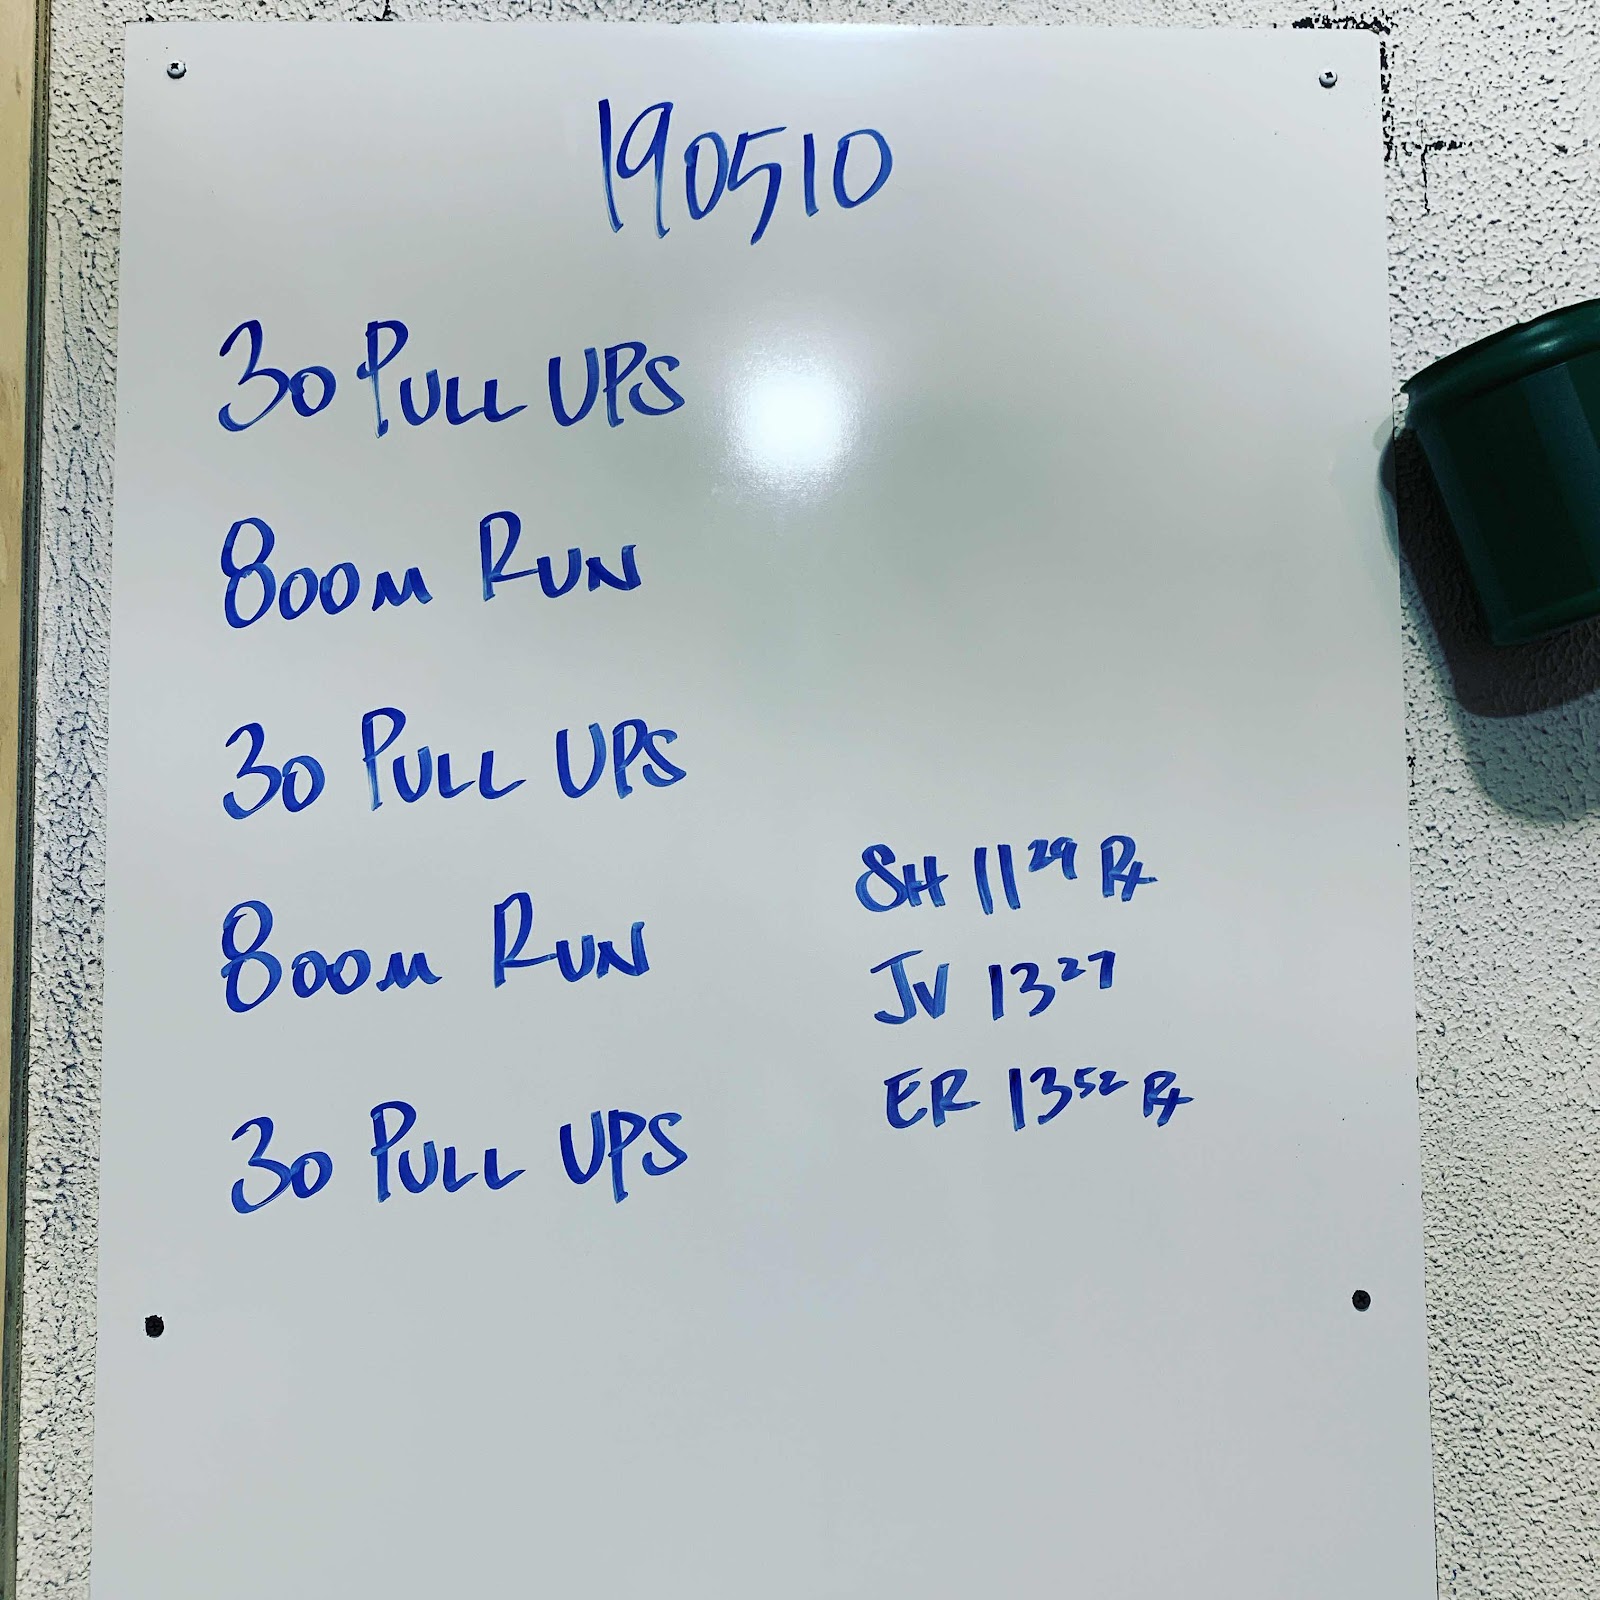 190510
30 PULL UPS
800M RUN
30 PULL UPS
800M RUN
30 PULL UPS
SH 11 29 Rx
JV 13 27
ER 13 52 Rx